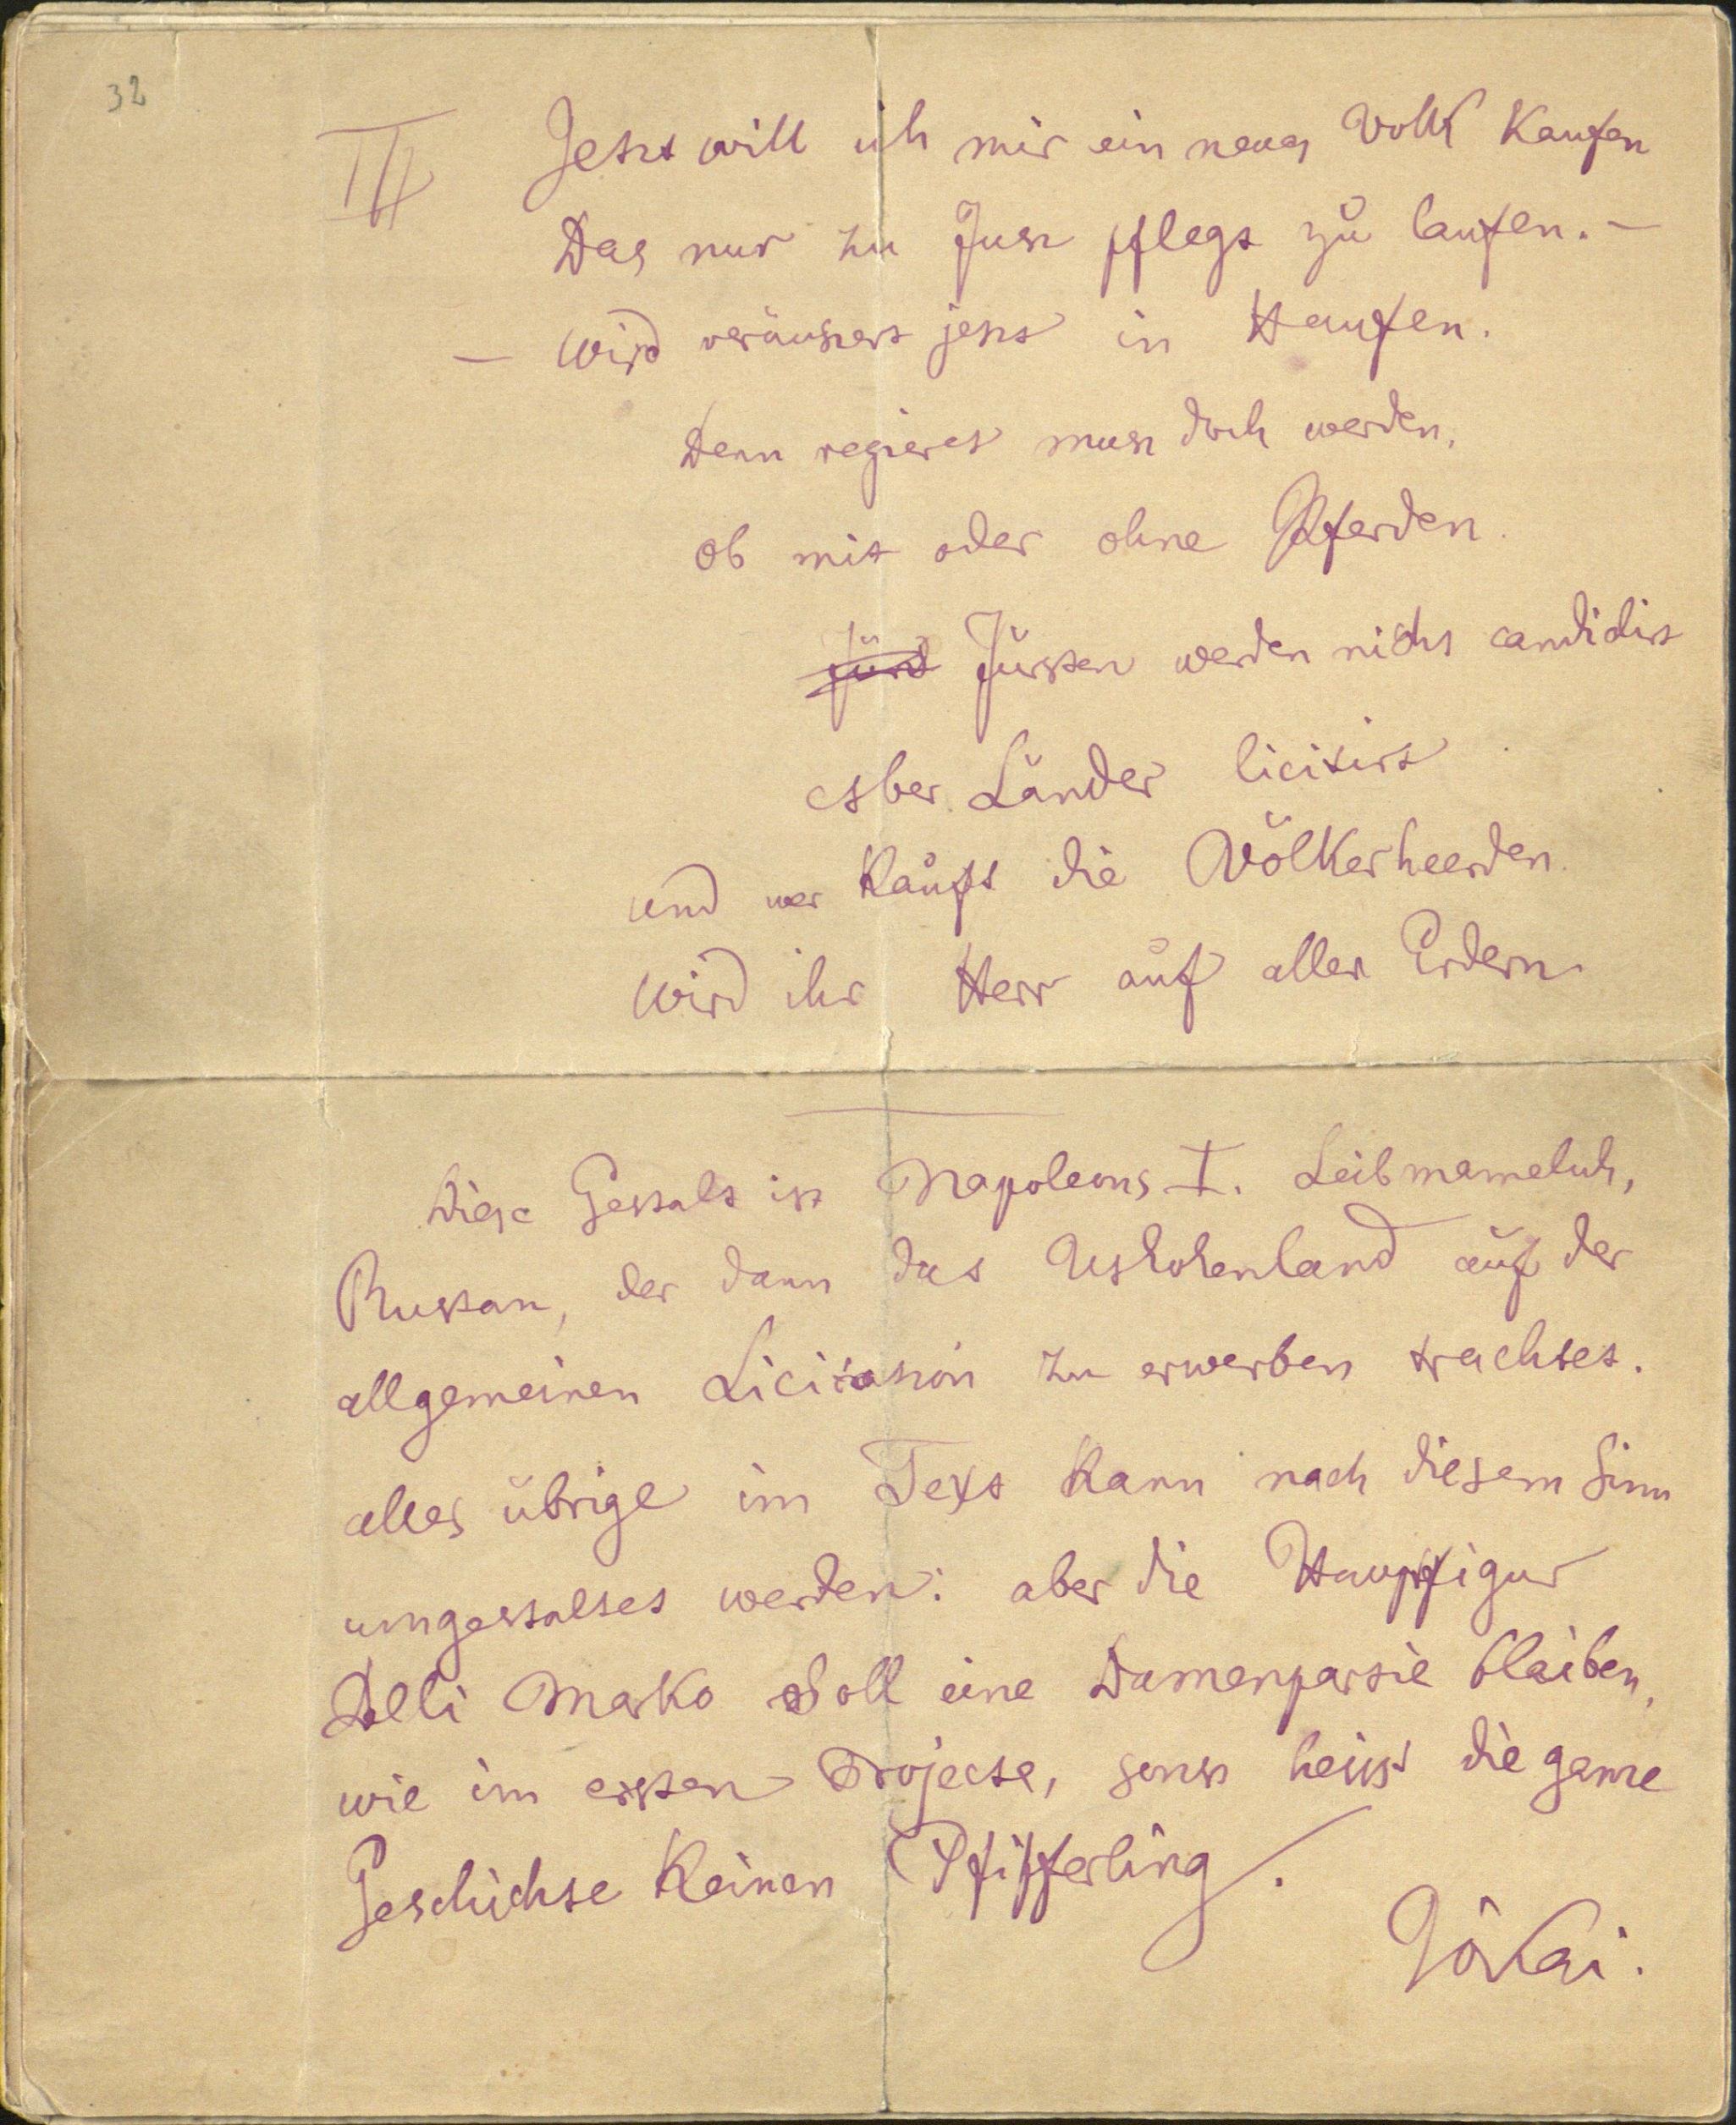 32
III Jetzt will ich mir ein neues Volk Kaufen
Das nur zu Fuss pflegt zu laufen. –
– Wird veräussert jetzt in Haufen.
Denn regieret muss doch werden,
Ob mit oder ohne Pferden.
Fürst Fürsten werden nicht candidirt
Aber Länder licitirt
und wer Kauft die Völkerheerden
Wird ihr Herr auf allen Erdern
Diese Gestalt ist Napoleons I. Leibmameluk,
Rustan, der dann das Uskokenland auf der
allgemeinen Licitation zu erwerben trachtet.
alles übrige im Text Kann nach diesem Sinn
umgestaltet werden: aber die Hauptfigur
Deli Marko Soll eine Damenpartie bleiben,
wie im ersten Projecte, sonst heisst die ganze
Geschichte Keinen Pfifferling.
Jókai.